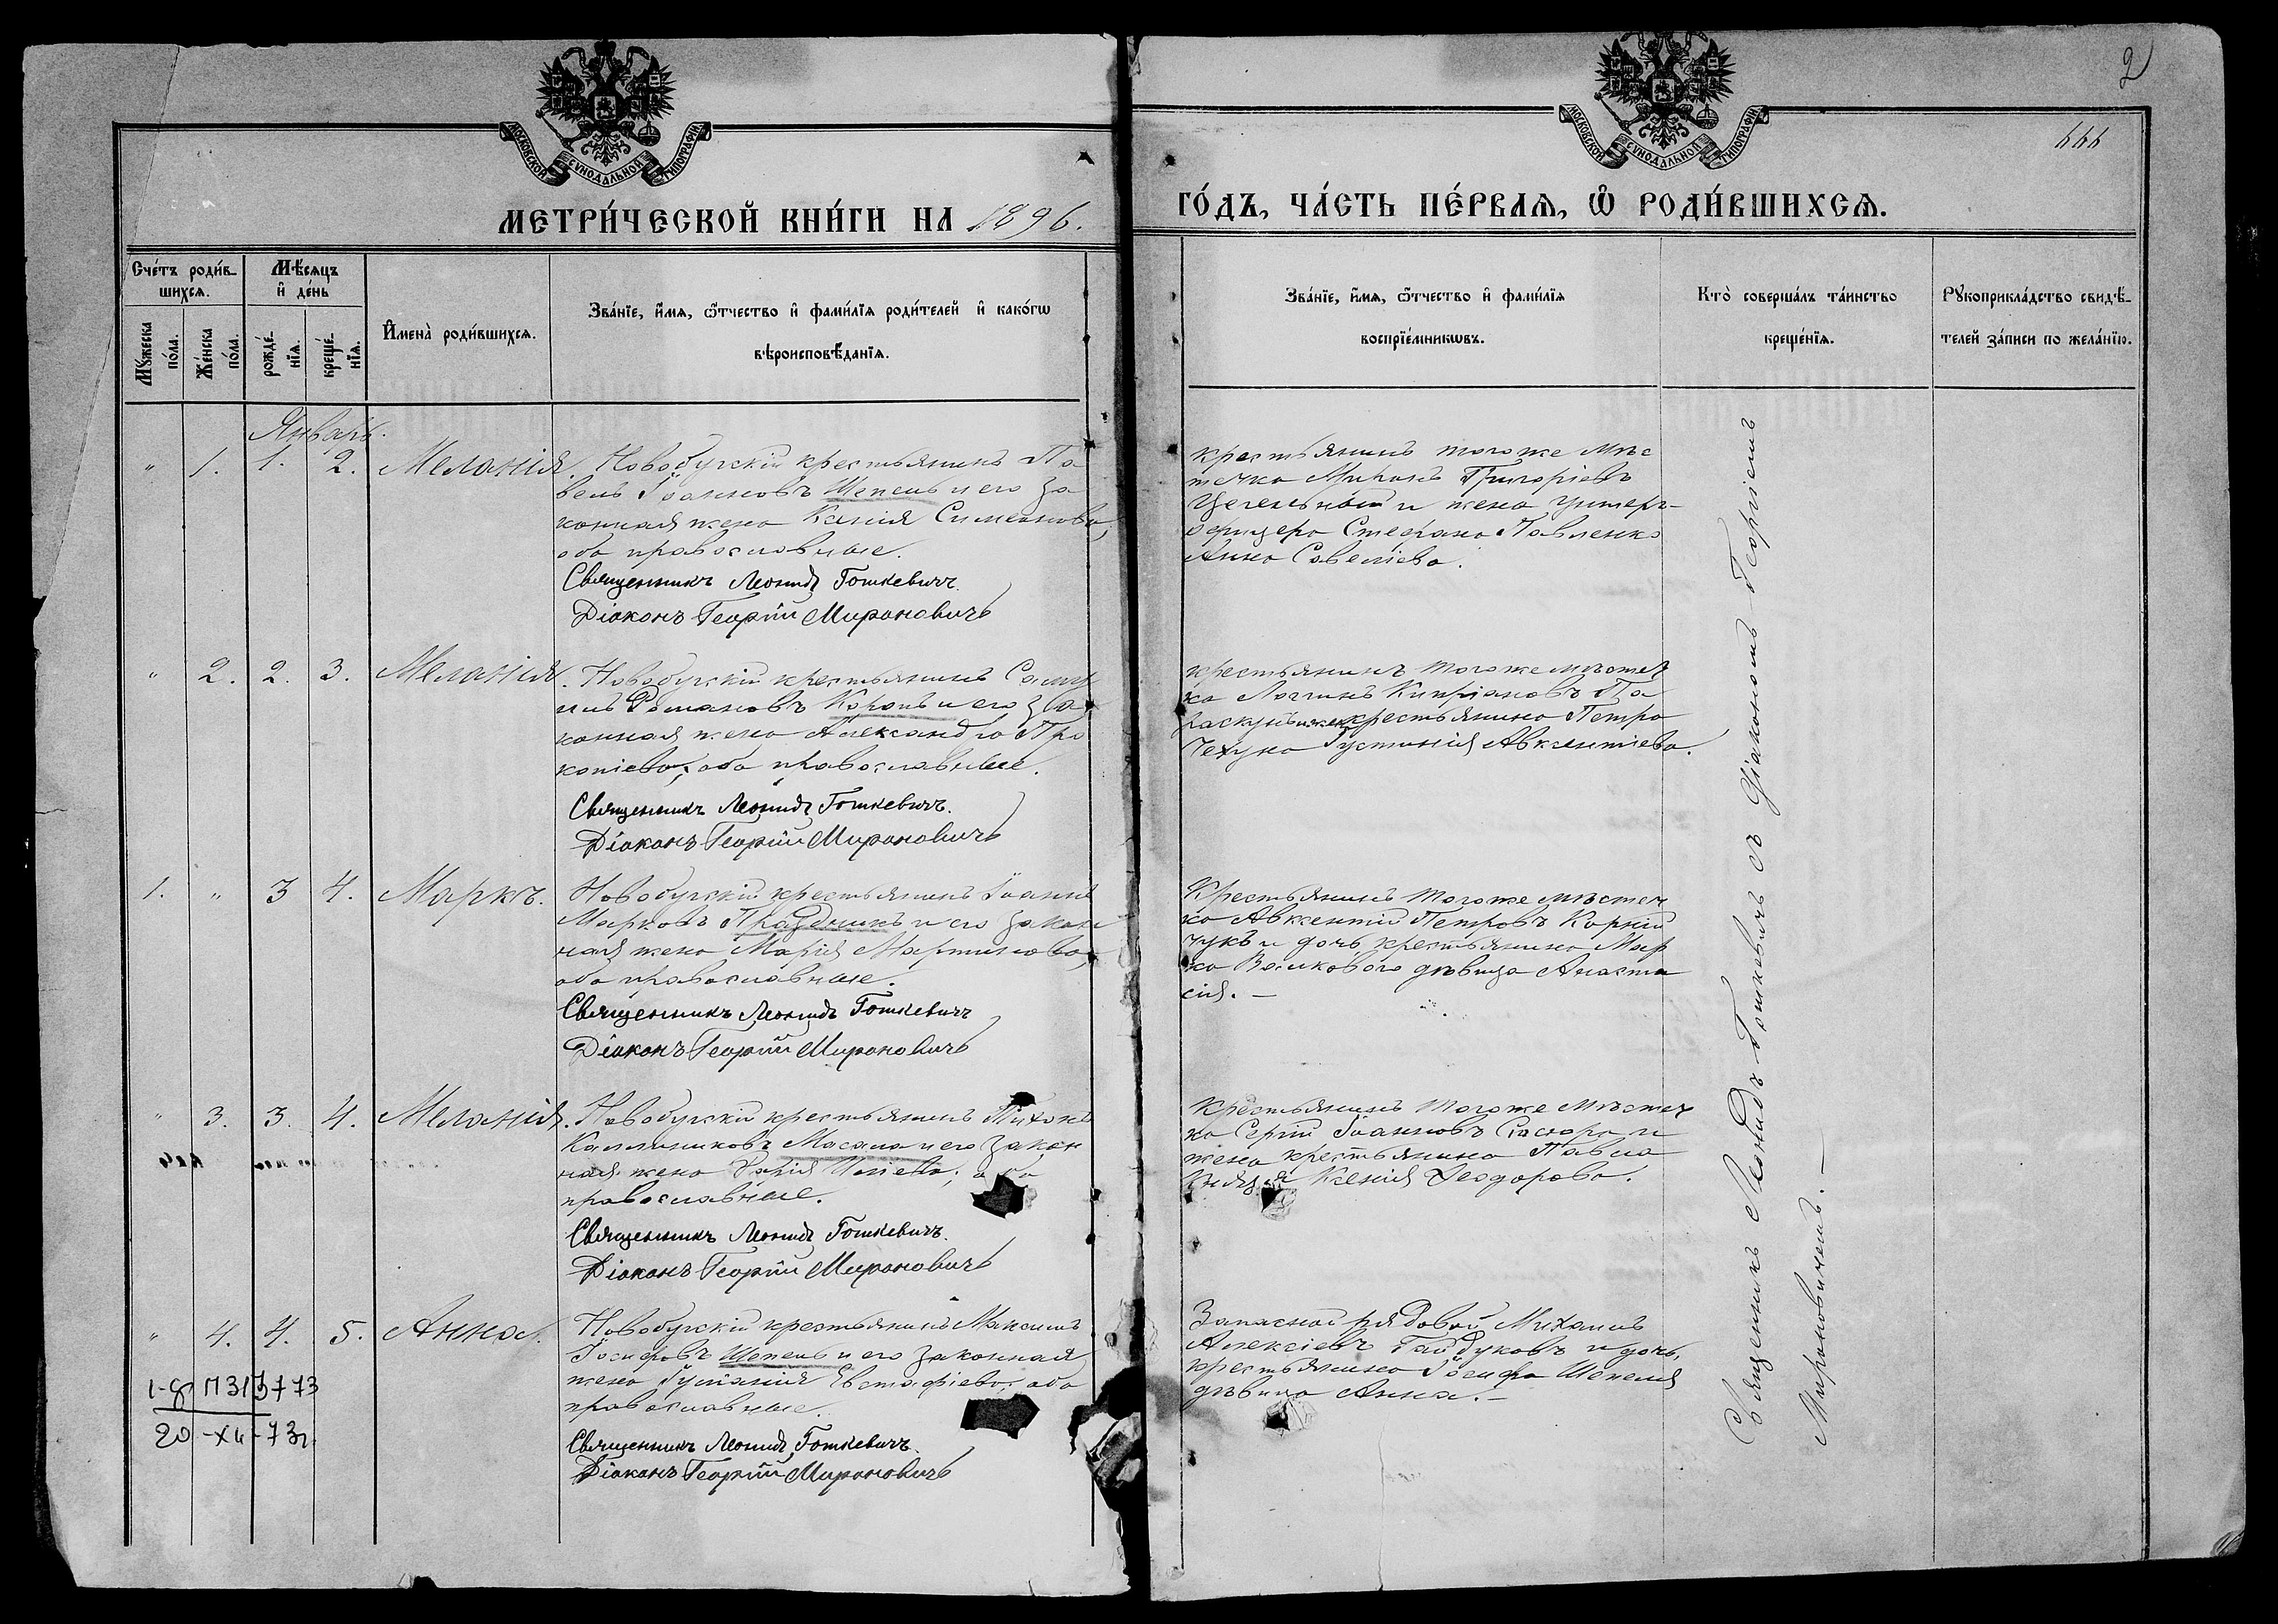 2
МОСКОВСКОЙ СѴНОДАЛЬНОЙ ТИПОГРАФІИ
МОСКОВСКОЙ СѴНОДАЛЬНОЙ ТИПОГРАФІИ
МЕТРИ́ЧЕСКОЙ КНИ́ГИ НА 1896.
ГО́ДЪ, ЧА́СТЬ ПЕ́РВАѦ, Ѡ҆ РОДИ́ВШИХСѦ.
Счéтъ роди́в-
шихсѧ.
Мѣ́сѧцъ
и҆ де́нь
Мꙋ́жеска
по́ла.
Же́нска
по́ла.
рожде́-
нїѧ.
креще́-
нїѧ.
И҆мена̀ роди́вшихсѧ.
Зва́нїе, и҆́мѧ, ѿтчество и҆ фами́лїѧ роди́телей и҆ како́гѡ
вѣроисповѣ́данїѧ.
Зва́нїе, и҆́мѧ, ѿтчество и҆ фами́лїѧ
воспрїе́мникѡвъ.
Кто̀ соверша́лъ та́инство
креще́нїѧ.
Рꙋкоприкла́дство свидѣ́-
телей за́писи по жела́нїю.
Январь.
" 1. 1. 2. Меланія
Новобугскій крестьянинъ Па
велъ Іоанновъ Шепель и его за
конная жена Ксенія Симеонова,
оба православные.
Священникъ Леонидъ Гошкевичъ.
Діаконъ Георгій Мироновичъ
крестьянинъ тогоже мѣс
течка Миронъ Григоріевъ
Цегельный и жена унтеръ-
офицера Стефана Павленко
Анна Савеліева.
" 2. 2. 3. Меланія.
Новобугскій крестьянинъ Саму
илъ Романовъ Коропъ и его за
конная жена Александра Про
копіева; оба православные.
Священникъ Леонидъ Гошкевичъ.
Діаконъ Георгій Мироновичъ
крестьянинъ тогоже мѣстеч
ка Логгинъ Кипріановъ Па
крестьянина Петра
Іустинія Авксентіева.
1. " 3 4. Маркъ.
Новобугскій крестьянинъ Іоаннъ
Марковъ Праздникъ и его закон
ная жена Марія Мартинова,
оба православные.
Священникъ Леонидъ Гошкевичъ
Діаконъ Георгій Мироновичъ
Крестьянинъ тогоже мѣстеч
ка Авксентій Петровъ Корній
чукъ и дочь крестьянина Мар
ка Волкового дѣвица Анаста
сія. —
" 3. 3. 4. Меланія.
Новобугскій крестьянинъ Тихонъ
Каллиниковъ Масало и его закон
ная жена Марія Иліева; оба
православные.
Священникъ Леонидъ Гошкевичъ.
Діаконъ Георгій Мироновичъ
Крестьянинъ тогоже мѣстеч
ка Сергій Іоанновъ и
жена крестьянина Павла
Князя Ксенія Ѳеодорова.
" 4. 4. 5. Анна.
Новобугскій крестьянинъ Максимъ
Іосифовъ Шепель и его законная
жена Іустинія Евстафіева; оба
православные.
Священникъ Леонидъ Гошкевичъ.
Діаконъ Георгій Мироновичъ
Запасной рядовой Михаилъ
Алексіевъ Гайдуковъ и дочь
крестьянина Іосифа Шепеля
дѣвица Анна. —
20-XII-73г.
Священникъ Леонидъ Гошкевичъ съ Діакономъ Георгіемъ
Мироновичемъ. —